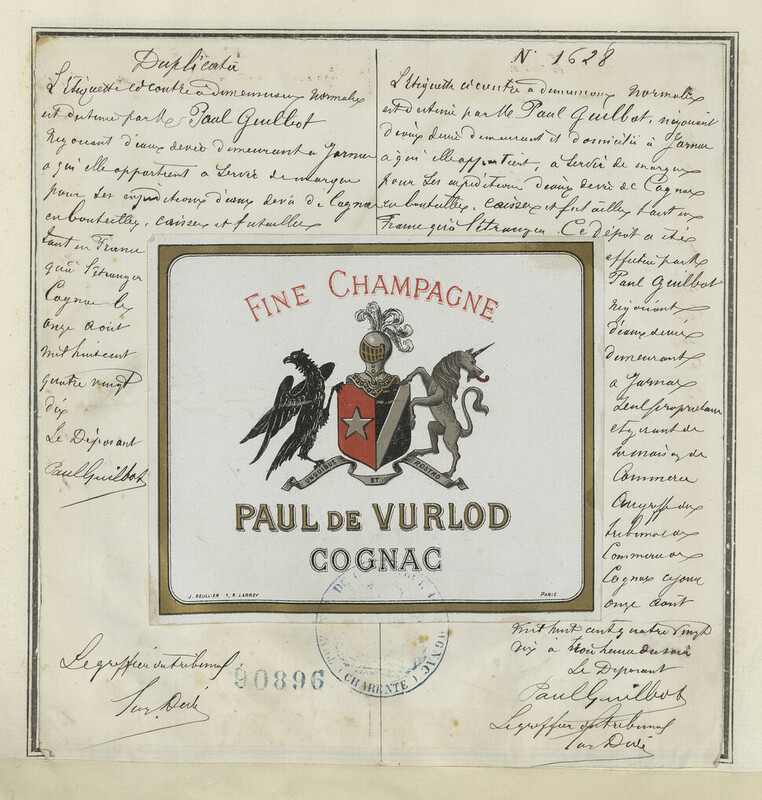 Duplicata
L'Etiquette ci contre a dimensions normales
est destinée par Mr Paul Guilbot
Négociant d'eaux de vie demeurant à Jarnac
à qui elle appartient à servir de marque
pour ses expéditions d'eaux de vie de Cognac
en bouteilles, caisses et futailles
tant en France
qu'à l'étranger
Cognac le
onze août
mil huit cent
quatre vingt
dix
Le Déposant
Paul Guilbot
Le greffier du tribunal
N° 1628
L'Etiquette ci contre a dimensions normales
est destinée par Mr Paul Guilbot, négociant
d'eaux de vie demeurant et domicilié à Jarnac
à qui elle appartient, à servir de marque
pour ses expéditions d'eaux de vie de Cognac
en bouteilles, caisses et futailles tant en
France qu'à l'étranger. Ce dépôt a été
effectué par Mr
Paul Guilbot
négociant
d'eaux de vie
demeurant
à Jarnac
seul propriétaire
et gérant de
sa maison de
Commerce
au greffe du
tribunal de
Commerce de
Cognac ce jour
onze août
mil huit cent quatre vingt
dix à trois heures du soir
Le Déposant
Paul Guilbot
Le greffier du tribunal
FINE CHAMPAGNE
UNGUIBUS ET ROSTRO
PAUL DE VURLOD
COGNAC
J. REULLIER 7, R. LARREY
PARIS
90896
COGNAC
(CHARENTE)